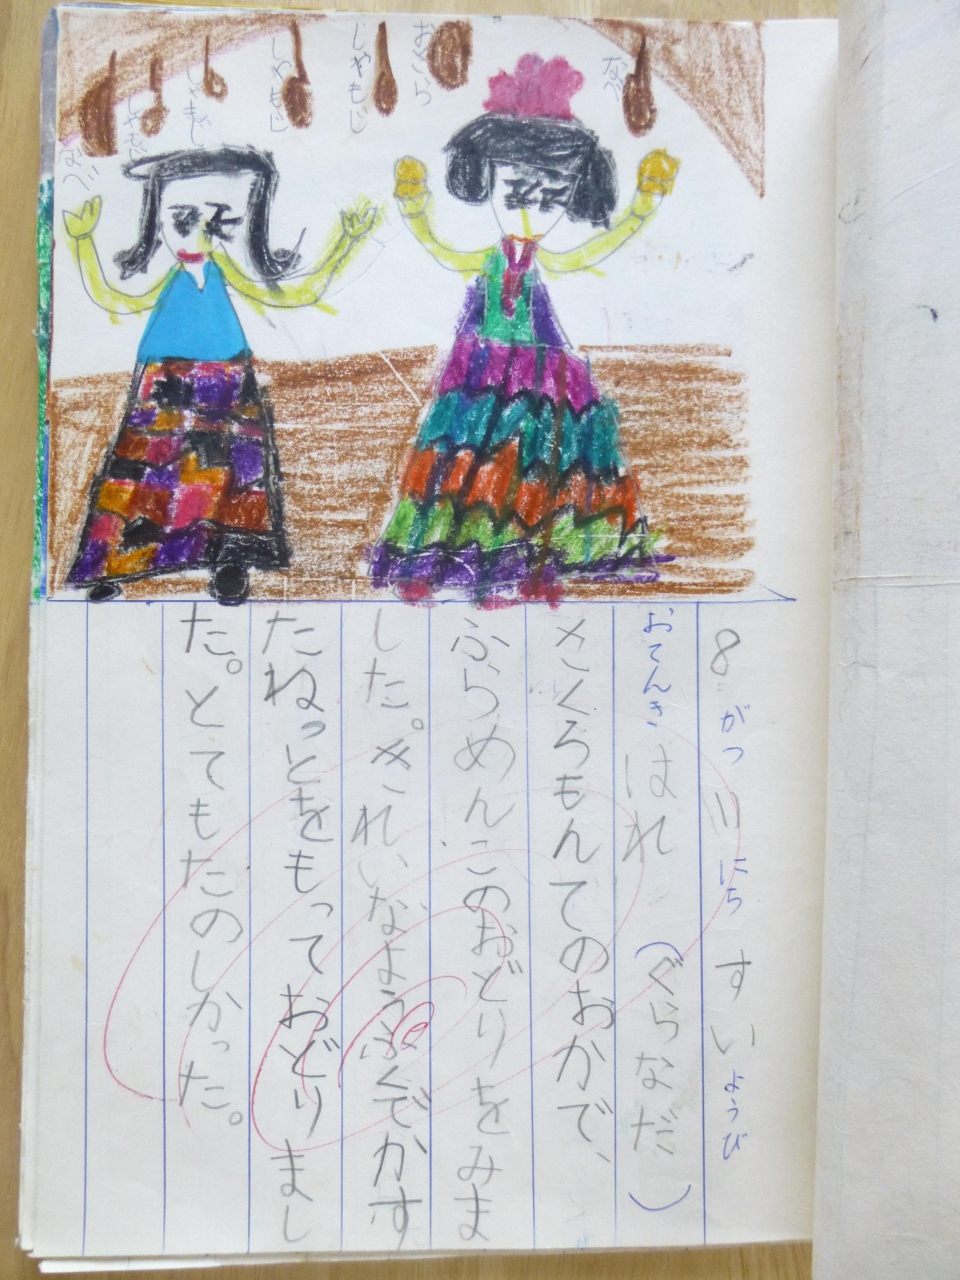 なべ
おさら
しゃもじ
しゃもじ
しゃもじ
しゃもじ
なべ
8 がつ 11 にち すい ようび
おてんき はれ (ぐらなだ)
さくろもんてのおかで、
ふらめんこのおどりをみま
した。きれいなようふくでかす
たねっとをもっておどりまし
た。とてもたのしかった。